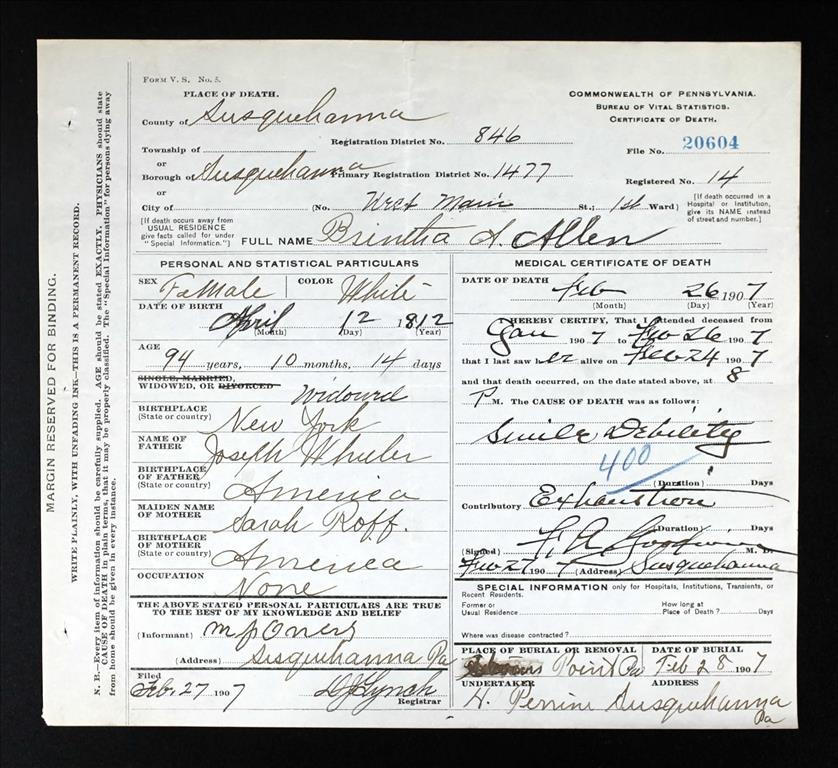 FORM V. S. No. 5.
PLACE OF DEATH.
County of Susquehanna
Township of
or
Borough of Susquehanna
or
City of
(No. West Main St.; 1st Ward)
COMMONWEALTH OF PENNSYLVANIA.
BUREAU OF VITAL STATISTICS.
CERTIFICATE OF DEATH.
Registration District No. 846
File No. 20604
Primary Registration District No. 1477
Registered No. 14
[If death occurred in a Hospital or Institution, give its NAME instead of street and number.]
[If death occurs away from USUAL RESIDENCE give facts called for under "Special Information."]
FULL NAME Brintha S. Allen
PERSONAL AND STATISTICAL PARTICULARS
SEX Famale
COLOR White
DATE OF BIRTH
April 12 1812
(Month) (Day) (Year)
AGE
94 years, 10 months, 14 days
SINGLE, MARRIED,
WIDOWED, OR DIVORCED Widowd
BIRTHPLACE
(State or country) New York
NAME OF
FATHER Joseph Wheeler
BIRTHPLACE
OF FATHER
(State or country) America
MAIDEN NAME
OF MOTHER Sarah Roff.
BIRTHPLACE
OF MOTHER
(State or country) America
OCCUPATION
None
THE ABOVE STATED PERSONAL PARTICULARS ARE TRUE
TO THE BEST OF MY KNOWLEDGE AND BELIEF
(Informant)
(Address) Susquehanna Pa
Filed
Feb. 27 1907
D J Lynch
Registrar
MEDICAL CERTIFICATE OF DEATH
DATE OF DEATH
Feb 26 1907
(Month) (Day) (Year)
I HEREBY CERTIFY, That I attended deceased
from
Jan 1907 to Feb 26 1907
that I last saw her alive on Feb 24 1907
and that death occurred, on the date stated above, at 8
P M. The CAUSE OF DEATH was as follows:
Senile Debility
400
(Duration) Days
Contributory Exhaustion
(Duration) Days
(Signed) Goodwin M. D.
Feb 27 1907 (Address) Susquehanna
SPECIAL INFORMATION only for Hospitals, Institutions, Transients, or
Recent Residents.
Former or
Usual Residence
How long at
Place of Death? Days
Where was disease contracted?
PLACE OF BURIAL OR REMOVAL
Point Pa
DATE OF BURIAL
Feb 28 1907
UNDERTAKER
Perrine
ADDRESS
Susquehanna
Pa
MARGIN RESERVED FOR BINDING.
WRITE PLAINLY, WITH UNFADING INK—THIS IS A PERMANENT RECORD.
N. B.—Every item of information should be carefully supplied. AGE should be stated EXACTLY. PHYSICIANS should state
CAUSE OF DEATH in plain terms, that it may be properly classified. The "Special Information" for persons dying away
from home should be given in every instance.